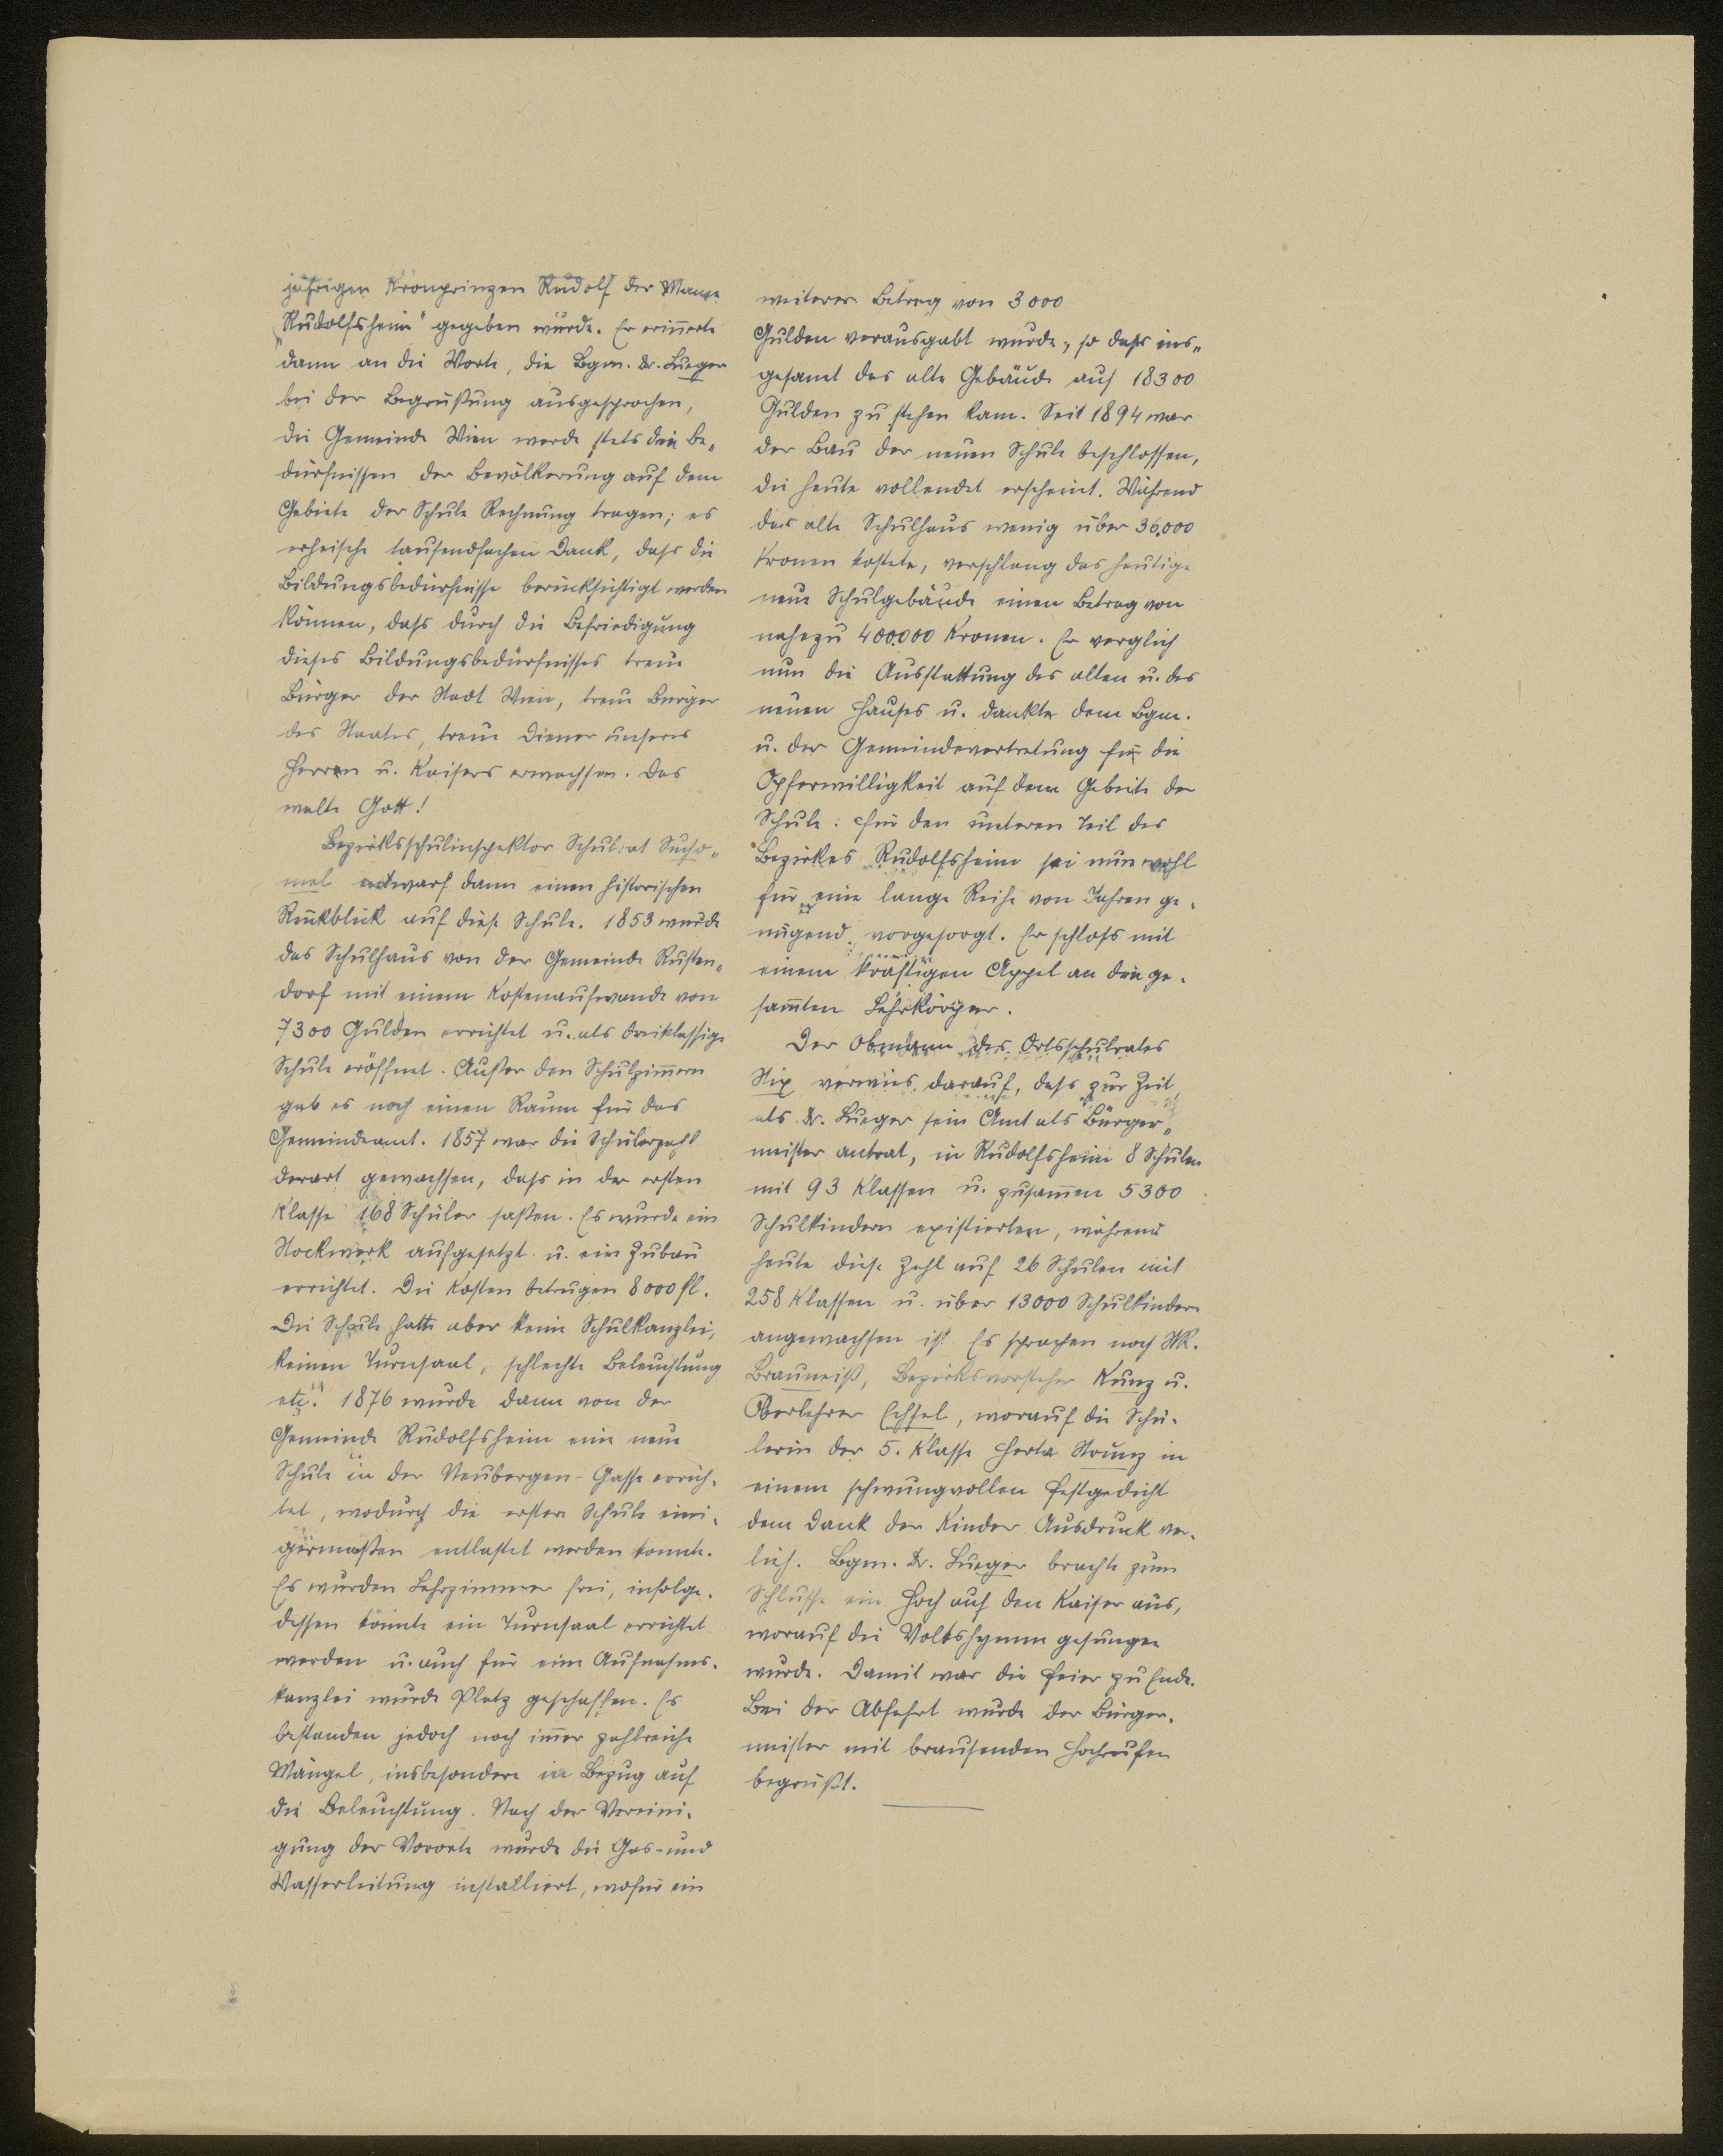 jährigen Kronprinzen Rudolf der Name
„Rudolfsheim" gegeben wurde. Er erinnerte
dann an die Worte, die Bgm. Dr. Lueger
bei der Begrüßung ausgesprochen,
die Gemeinde Wien werde stets den Be„
dürfnissen der Bevölkerung auf dem
Gebiete der Schule Rechnung tragen; es
erheische tausendfachen Dank, daß die
Bildungsbedürfnisse berücksichtigt werden
können, daß durch die Befriedigung
dieses Bildungsbedürfnisses treue
Bürger der Stadt Wien, treue Bürger
des Staates, treue Diener unseres
Herren u. Kaisers erwachsen. Das
walte Gott!
Bezirksschulinspektor Schulrat Sucho„
mel entwarf dann einen historischen
Rückblick auf diese Schule. 1853 wurde
das Schulhaus von der Gemeinde Rusten„
dorf mit einem Kostenaufwande von
7300 Gulden errichtet u. als dreiklassige
Schule eröffnet. Außer den Schulzim̄ern
gab es noch einen Raum für das
Gemeindeamt. 1857 war die Schülerzahl
derart gewachsen, daß in der ersten
Klasse 168 Schüler saßen. Es wurde ein
Stockwerk aufgesetzt u. ein Zubau
errichtet. Die Kosten betrugen 8000 fl.
Die Schule hatte aber keine Schulkanzlei,
keinen Turnsaal, schlechte Beleuchtung
etc. 1876 wurde dann von der
Gemeinde Rudolfsheim eine neue
Schule in der Neubergen-Gasse errich-
tet, wodurch die erstere Schule eini-
germaßen entlastet werden konnte.
Es wurden Lehrzimmer frei, infolge-
dessen konnte ein Turnsaal errichtet
werden u. auch für eine Aufnahms-
kanzlei wurde Platz geschaffen. Es
bestanden jedoch noch im̄er zahlreiche
Mängel, insbesondere in Bezug auf
die Beleuchtung. Nach der Vereini-
gung der Vororte wurde die Gas- und
Wasserleitung installiert, wofür ein
weiterer Betrag von 3000
Gulden verausgabt wurde, so daß ins„
gesamt das alte Gebäude auf 18300
Gulden zu stehen kam. Seit 1894 war
der Bau der neuen Schule beschlossen,
die heute vollendet erscheint. Während
das alte Schulhaus wenig über 36.000
Kronen kostete, verschlang das heutige
neue Schulgebäude einen Betrag von
nahezu 400.000 Kronen. Er verglich
nun die Ausstattung des alten u. des
neuen Hauses u. dankte dem Bgm.
u. der Gemeindevertretung für die
Opferwilligkeit auf dem Gebiete der
Schule. Für den unteren Teil des
Bezirkes Rudolfsheim sei nun wohl
für eine lange Reihe von Jahren ge-
nügend vorgesorgt. Er schloß mit
einem kräftigen Appel an den ge-
sam̄ten Lehrkörper.
Der Obmann des Ortsschulrates
Stix verwies darauf, daß zur Zeit
als Dr. Lueger sein Amt als Bürger„
meister antrat, in Rudolfsheim 8 Schulen
mit 93 Klassen u. zusam̄en 5300
Schulkindern existierten, während
heute diese Zahl auf 26 Schulen mit
258 Klassen u. über 13000 Schulkindern
angewachsen ist. Es sprachen noch StR.
Brauneiß, Bezirksvorsteher Kunz u.
Oberlehrer Echsel, worauf die Schü-
lerin der 5. Klasse Herta Strunz in
einem schwungvollen Festgedicht
dem Dank der Kinder Ausdruck ver-
lieh. Bgm. Dr. Lueger brachte zum
Schlusse ein Hoch auf den Kaiser aus,
worauf die Volkshymne gesungen
wurde. Damit war die Feier zu Ende.
Bei der Abfahrt wurde der Bürger-
meister mit brausenden Hochrufen
begrüßt.